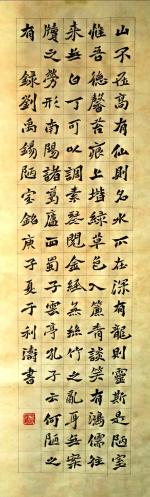 山不在高有仙則名水不在深有龍則靈斯是陋室
惟吾德馨苔痕上堦綠草色入簾青談笑有鴻儒往
来無白丁可以調素琴閱金經無絲竹之亂耳無案
牘之勞形南陽諸葛廬西蜀子雲亭孔子云何陋之
有 録劉禹錫陋室銘庚子夏于利濤書